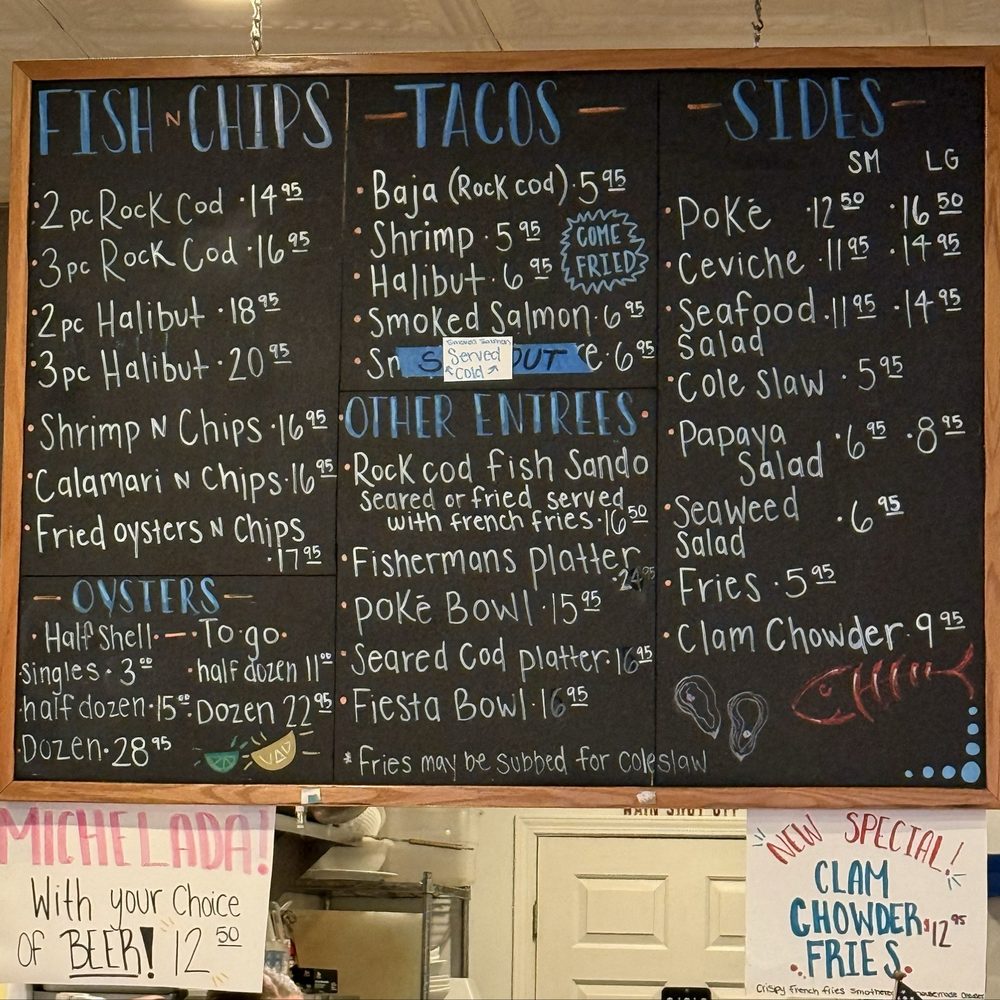 FISH N CHIPS
2pc Rock Cod · 14 95
3pc Rock Cod · 16 95
2pc Halibut · 18 95
3pc Halibut · 20 95
Shrimp N Chips · 16 95
Calamari N Chips · 16 95
Fried oysters N Chips
· 17 95
- OYSTERS -
· Half Shell · - To go ·
· Singles · 3 00
· half dozen 11 00
· half dozen · 15 00
· Dozen 22 95
· Dozen · 28 95
- TACOS -
· Baja (Rock cod) · 5 95
· Shrimp · 5 95
· Halibut · 6 95
COME
FRIED
· Smoked Salmon · 6 95
Smoked Salmon
Served
Cold
OUT
6 95
OTHER ENTREES
· Rock cod fish Sando
seared or fried served
with french fries · 16 50
· Fishermans platter
· 24 95
· poké Bowl · 15 95
· Seared Cod platter · 16 95
· Fiesta Bowl · 16 95
* Fries may be subbed for coleslaw
- SIDES -
SM LG
· Poké · 12 50 · 16 50
· Ceviche · 11 95 · 14 95
· Seafood · 11 95 · 14 95
Salad
· Cole Slaw · 5 95
· Papaya · 6 95 · 8 95
Salad
· Seaweed · 6 95
Salad
· Fries · 5 95
· Clam Chowder · 9 95
MICHELADA!
With your Choice
OF BEER! 12 50
MAIN SHUT OFF
NEW SPECIAL!
CLAM
CHOWDER $12 95
FRIES
Crispy french fries